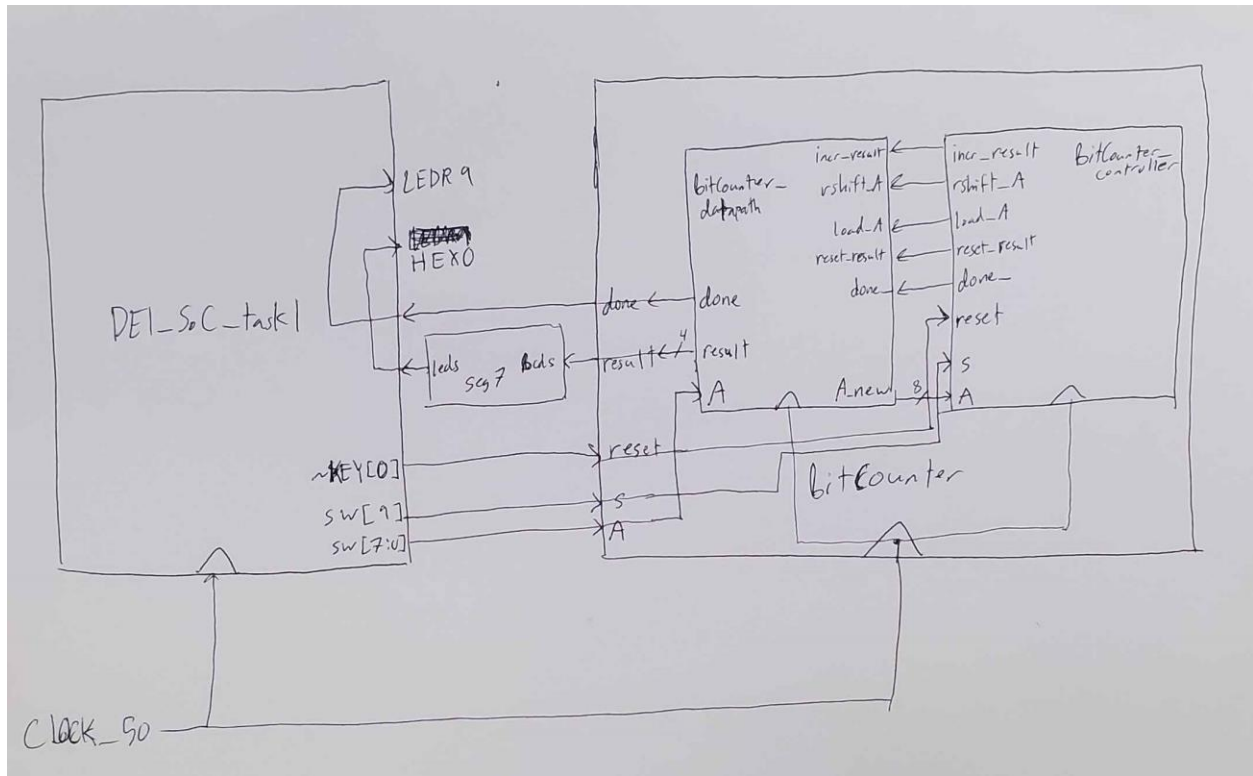 LEDR9
HEX0
DE1_SoC_task1
~KEY[0]
SW[9]
SW[7:0]
leds
bcds
seg7
done
result
reset
S
A
bitCounter_
datapath
incr_result
rshift_A
load_A
reset_result
done_
done
4
result
A
A_new
8
incr_result
rshift_A
load_A
reset_result
done_
reset
S
A
BitCounter_
controller
bitCounter
Clock_50